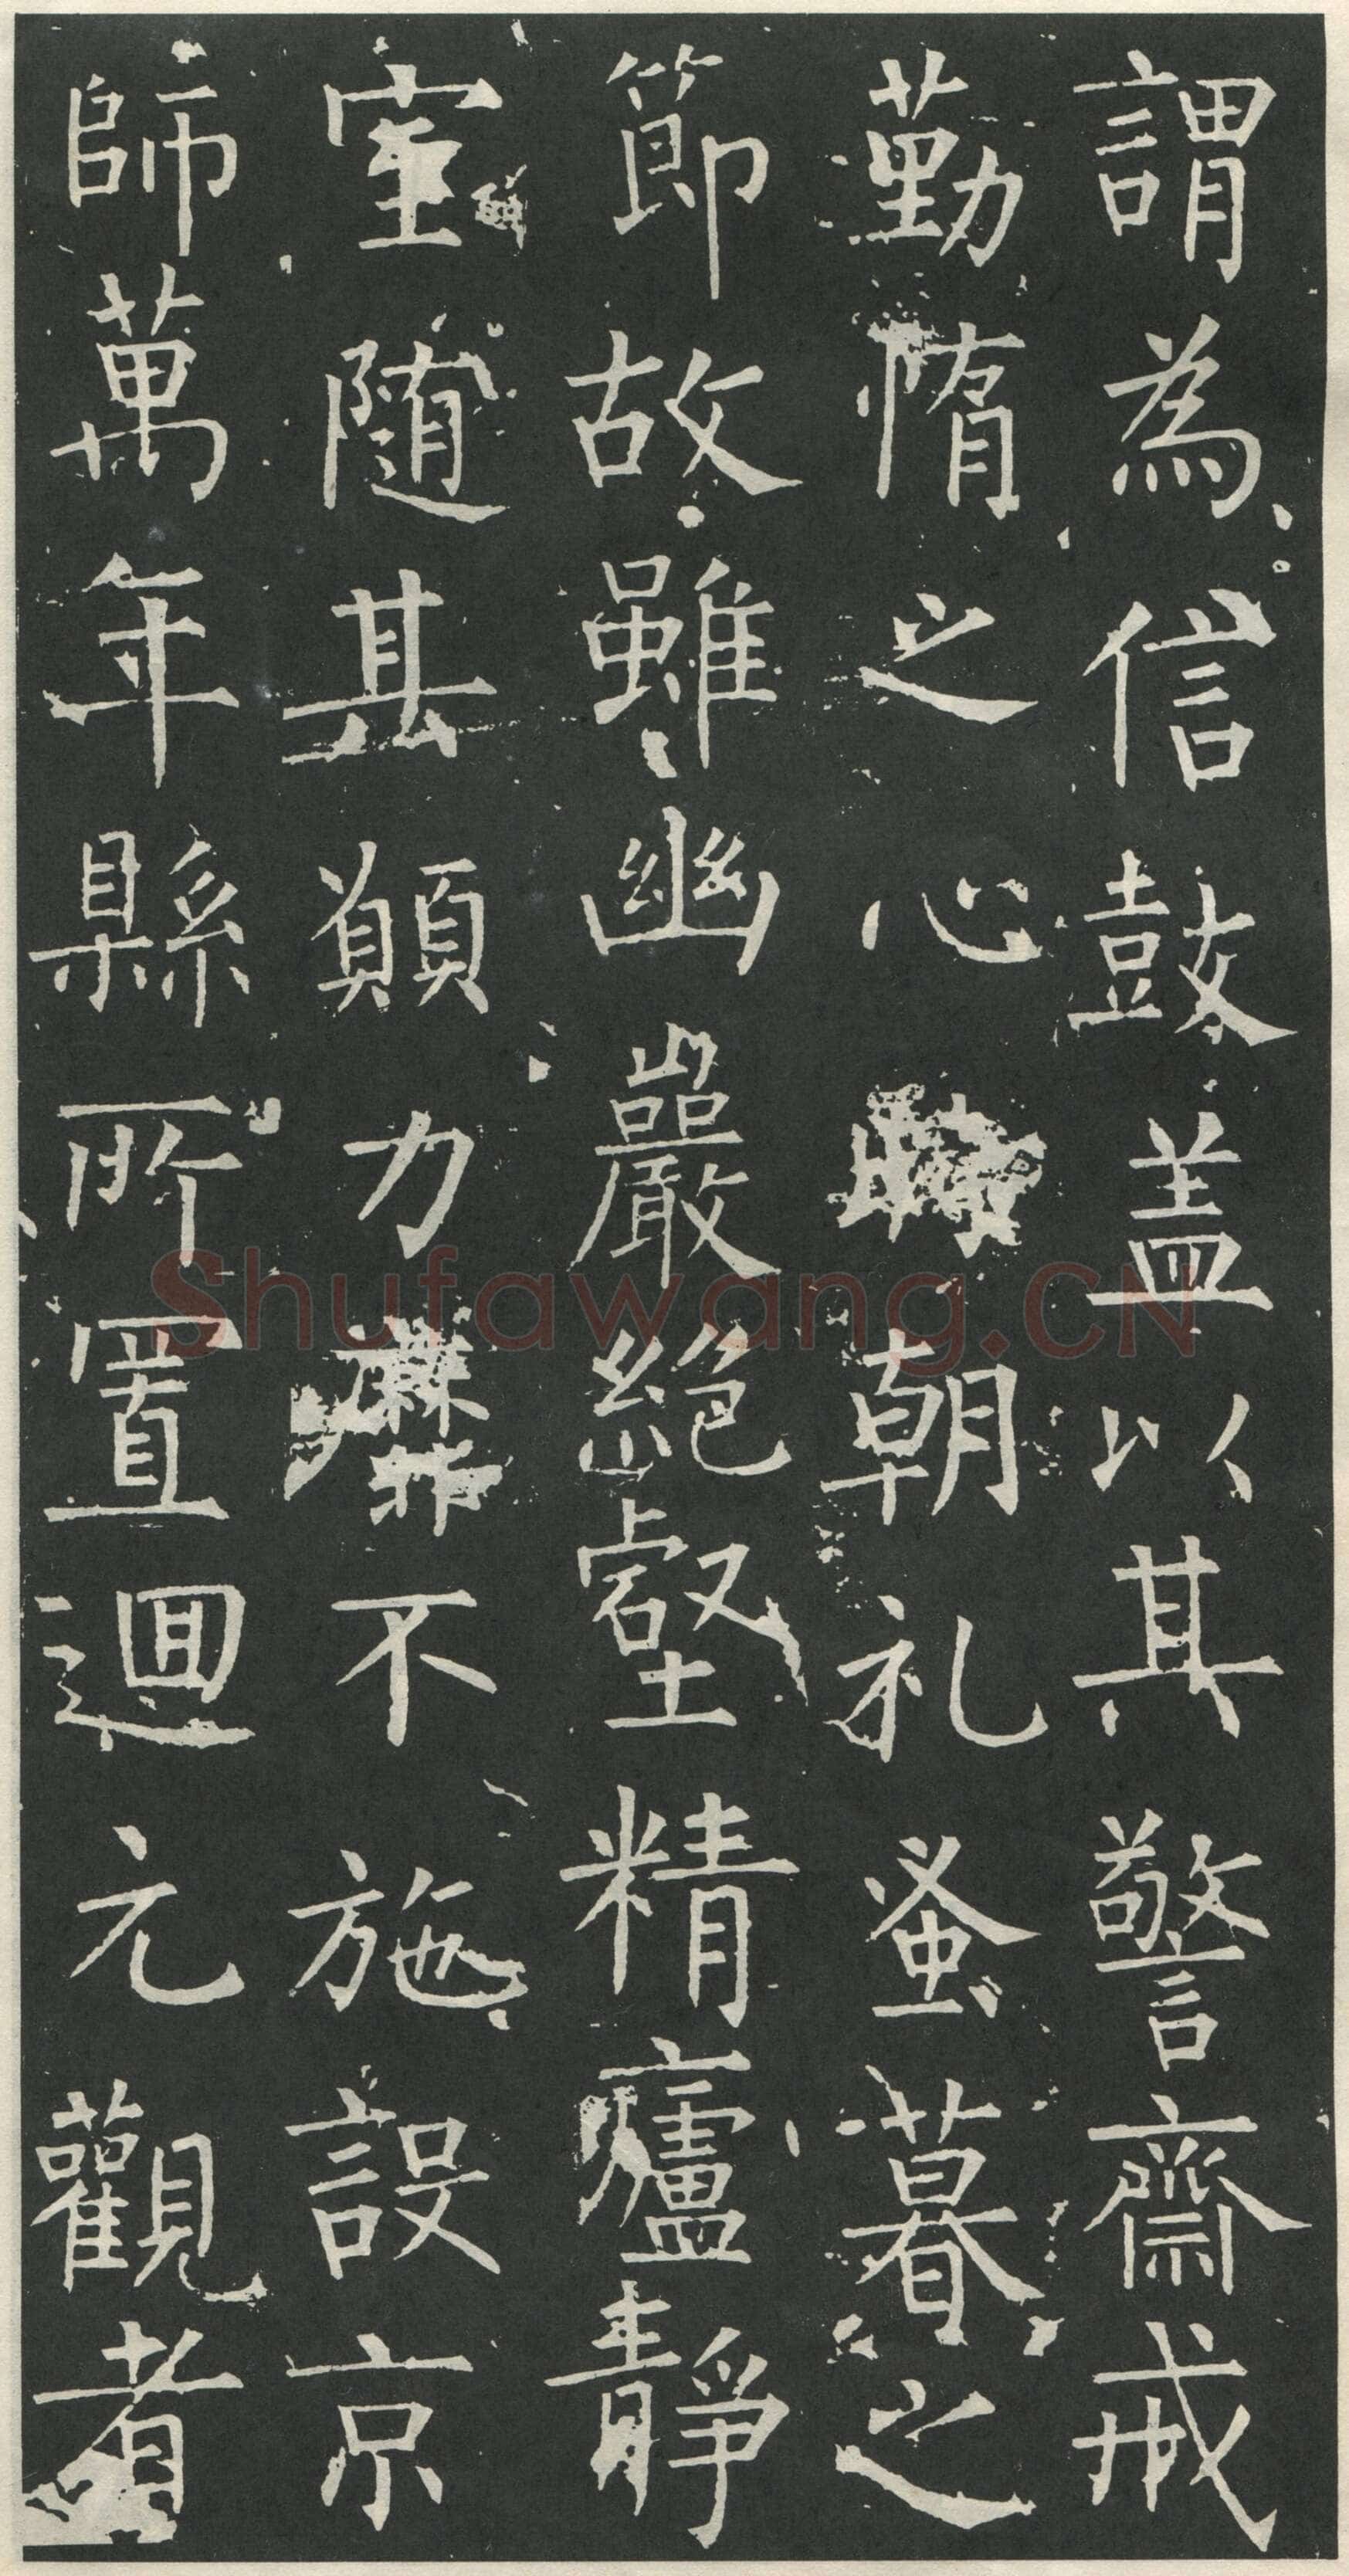 謂為信鼓盖以其警齋戒
勤惰之心時朝礼蚤暮之
節故雖幽巖絶壑精廬靜
室随其願力靡不施設京
師萬年縣所置迴元觀者
Shufawang.CN